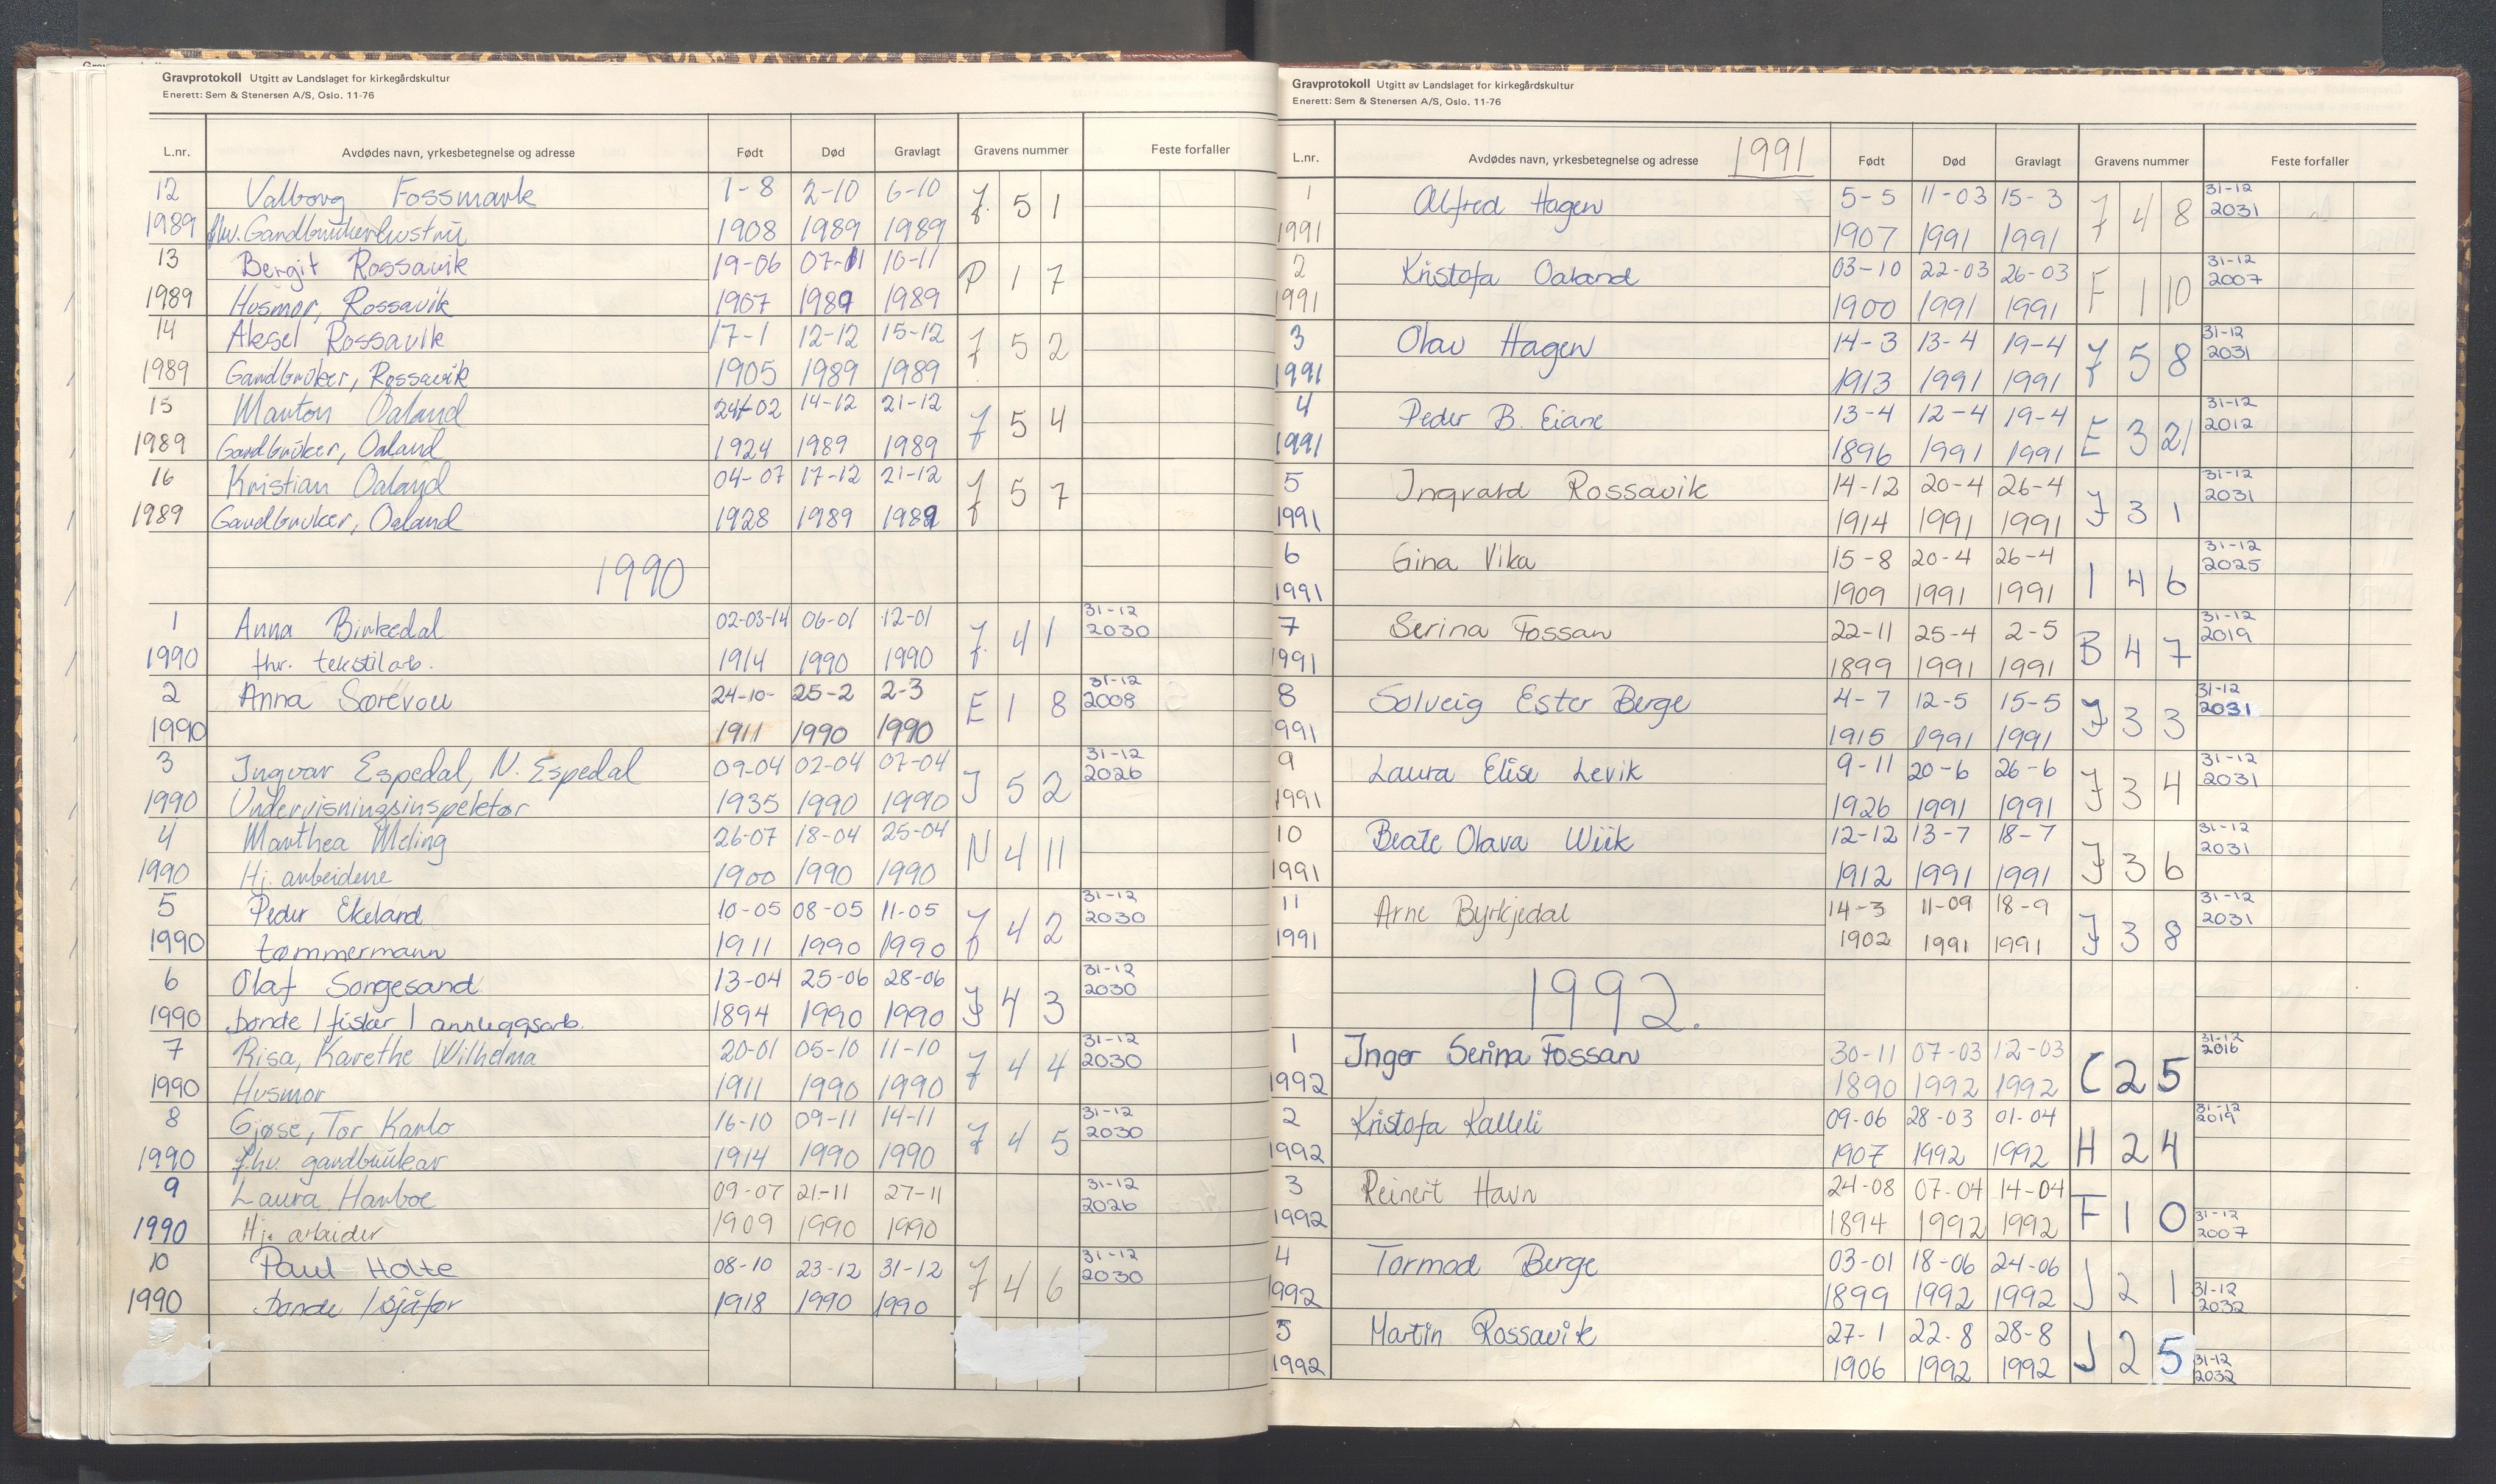 Gravprotokoll Utgitt av Landslaget for kirkegårdskultur
Enerett: Sem & Stenersen A/S, Oslo. 11-76
L.nr. Avdødes navn, yrkesbetegnelse og adresse Født Død Gravlagt Gravens nummer Feste forfaller
12 Valborg Fossmark 1-8 2-10 6-10 J 5 1
1989 fhv. Gardbrukerhustru 1908 1989 1989
13 Bergit Rossavik 19-06 07-11 10-11 P 1 7
1989 Husmor, Rossavik 1907 1989 1989
14 Aksel Rossavik 17-1 12-12 15-12 J 5 2
1989 Gardbruker, Rossavik 1905 1989 1989
15 Marton Oaland 24-02 14-12 21-12 J 5 4
1989 Gardbruker, Oaland 1924 1989 1989
16 Kristian Oaland 04-07 17-12 21-12 J 5 7
1989 Gardbruker, Oaland 1928 1989 1989
1990
1 Anna Birkedal 02-03-14 06-01 12-01 J 4 1 31-12 2030
1990 fhv. tekstilarb. 1914 1990 1990
2 Anna Sørevoll 24-10- 25-2 2-3 E 1 8 31-12 2008
1990 1911 1990 1990
3 Ingvar Espedal, N. Espedal 09-04 02-04 07-04 J 5 2 31-12 2026
1990 Undervisningsinspektør 1935 1990 1990
4 Marthea Meling 26-07 18-04 25-04 N 4 11
1990 Hj. arbeidene 1900 1990 1990
5 Peder Ekeland 10-05 08-05 11-05 J 4 2 31-12 2030
1990 tømmermann 1911 1990 1990
6 Olaf Songesand 13-04 25-06 28-06 J 4 3 31-12 2030
1990 bonde / fisker / annleggsarb. 1894 1990 1990
7 Risa, Karethe Wilhelma 20-01 05-10 11-10 J 4 4 31-12 2030
1990 Husmor 1911 1990 1990
8 Gjøse, Tor Karlo 16-10 09-11 14-11 J 4 5 31-12 2030
1990 f.hv. gardbrukar 1914 1990 1990
9 Laura Harboe 09-07 21-11 27-11 31-12 2026
1990 Hj. arbeider 1909 1990 1990
10 Paul Holte 08-10 23-12 31-12 J 4 6 31-12 2030
1990 bonde / sjåfør 1918 1990 1990
Gravprotokoll Utgitt av Landslaget for kirkegårdskultur
Enerett: Sem & Stenersen A/S, Oslo. 11-76
L.nr. Avdødes navn, yrkesbetegnelse og adresse 1991 Født Død Gravlagt Gravens nummer Feste forfaller
1 Alfred Hagen 5-5 11-03 15-3 J 4 8 31-12 2031
1991 1907 1991 1991
2 Kristofa Oaland 03-10 22-03 26-03 F 1 10 31-12 2007
1991 1900 1991 1991
3 Olav Hagen 14-3 13-4 19-4 J 5 8 31-12 2031
1991 1913 1991 1991
4 Peder B. Eiane 13-4 12-4 19-4 E 3 21 31-12 2012
1991 1896 1991 1991
5 Ingvard Rossavik 14-12 20-4 26-4 J 3 1 31-12 2031
1991 1914 1991 1991
6 Gina Vika 15-8 20-4 26-4 I 4 6 31-12 2025
1991 1909 1991 1991
7 Serina Fossan 22-11 25-4 2-5 B 4 7 31-12 2019
1991 1899 1991 1991
8 Solveig Ester Berge 4-7 12-5 15-5 J 3 3 31-12 2031
1991 1915 1991 1991
9 Laura Elise Levik 9-11 20-6 26-6 J 3 4 31-12 2031
1991 1926 1991 1991
10 Beate Olava Wiik 12-12 13-7 18-7 J 3 6 31-12 2031
1991 1912 1991 1991
11 Arne Byrkjedal 14-3 11-09 18-9 J 3 8 31-12 2031
1991 1902 1991 1991
1992.
1 Inger Serina Fossan 30-11 07-03 12-03 C 2 5 31-12 2016
1992 1890 1992 1992
2 Kristofa Kalleli 09-06 28-03 01-04 H 2 4 31-12 2019
1992 1907 1992 1992
3 Reinert Havn 24-08 07-04 14-04 F 1 0 31-12 2007
1992 1894 1992 1992
4 Tormod Berge 03-01 18-06 24-06 J 2 1 31-12 2032
1992 1899 1992 1992
5 Martin Rossavik 27-1 22-8 28-8 J 2 5 31-12 2032
1992 1906 1992 1992